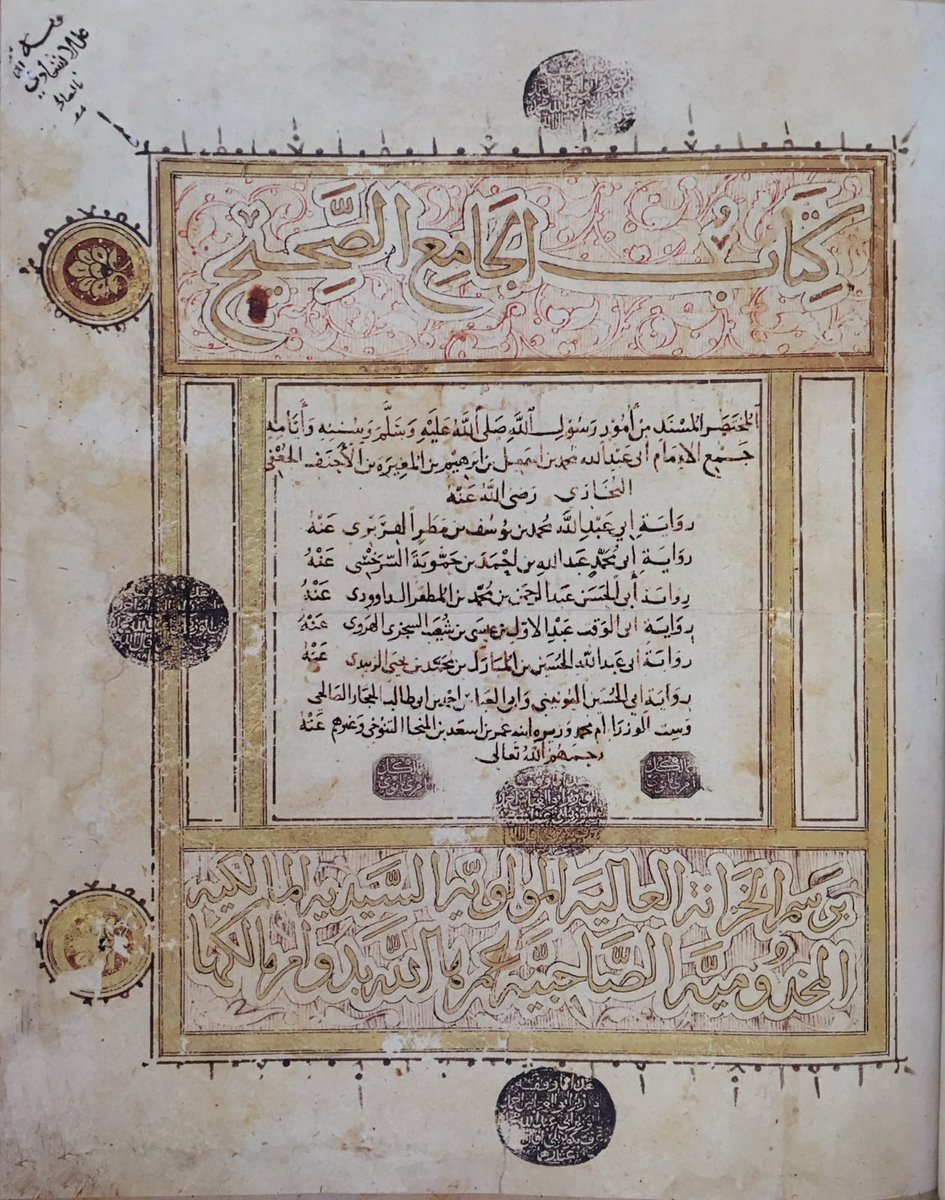 كتاب الجامع الصحيح
المختصر المسند من أمور رسول الله صلى الله عليه وسلم وسننه وأيامه
جمع الإمام أبي عبد الله محمد بن اسمعيل بن ابرهيم بن المغيرة بن الأحنف الجعفي
البخاري رضي الله عنه
رواية أبي عبد الله محمد بن يوسف بن مطر الفربري عنه
رواية أبي محمد عبد الله بن احمد بن حموية السرخسي عنه
رواية أبي الحسن عبد الرحمن بن محمد بن المظفر الداوودي عنه
رواية ابي الوقت عبد الاول بن عيسى بن شعيب السجزي الهروي عنه
رواية ابي عبد الله الحسين بن المبارك بن محمد بن يحيى الزبيدي عنه
رواية ابي الحسين اليونيني وابي العباس احمد بن ابي طالب الحجار الصالحي
وست الوزرا ام محمد وزيره ابنه عمر بن اسعد بن المنجا التنوخي وغيرهم عنه
رحمهم الله تعالى
برسم الخزانة العالية المولوية السيدية المالكية
المخدومية الصاحبية عمرها الله بدوام مالكها